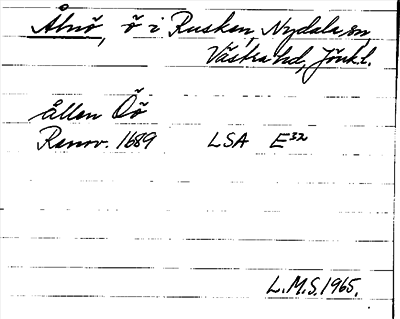 Ålnö, ö i Rusken, Nydala sn,
Västra hd, Jönk.l.
Ållen Öö
Renov. 1689 LSA E³²
L.M.S. 1965.